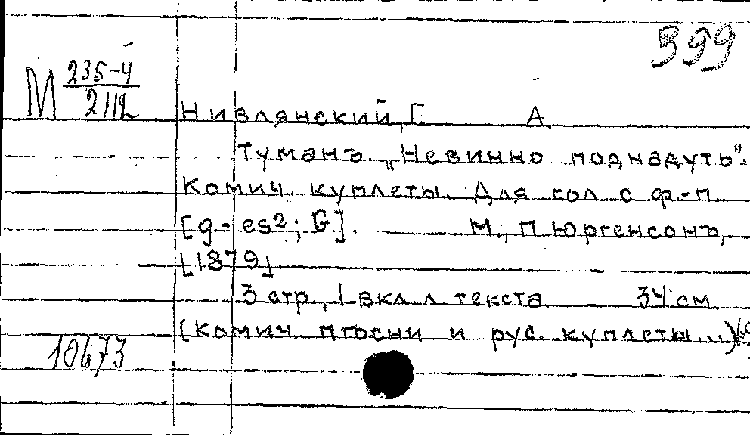 399
М 235-4/2112
Нивлянский, Г. А.
Туманъ „Невинно поднадуть".
Комич. куплеты. Для гол. с ф.-п.
[g-es2; G]. М., П. Юргенсонъ,
[1879]
3 стр., 1 вкл. л. текста 34 см.
(Комич. пѣсни и рус. куплеты...)
10673